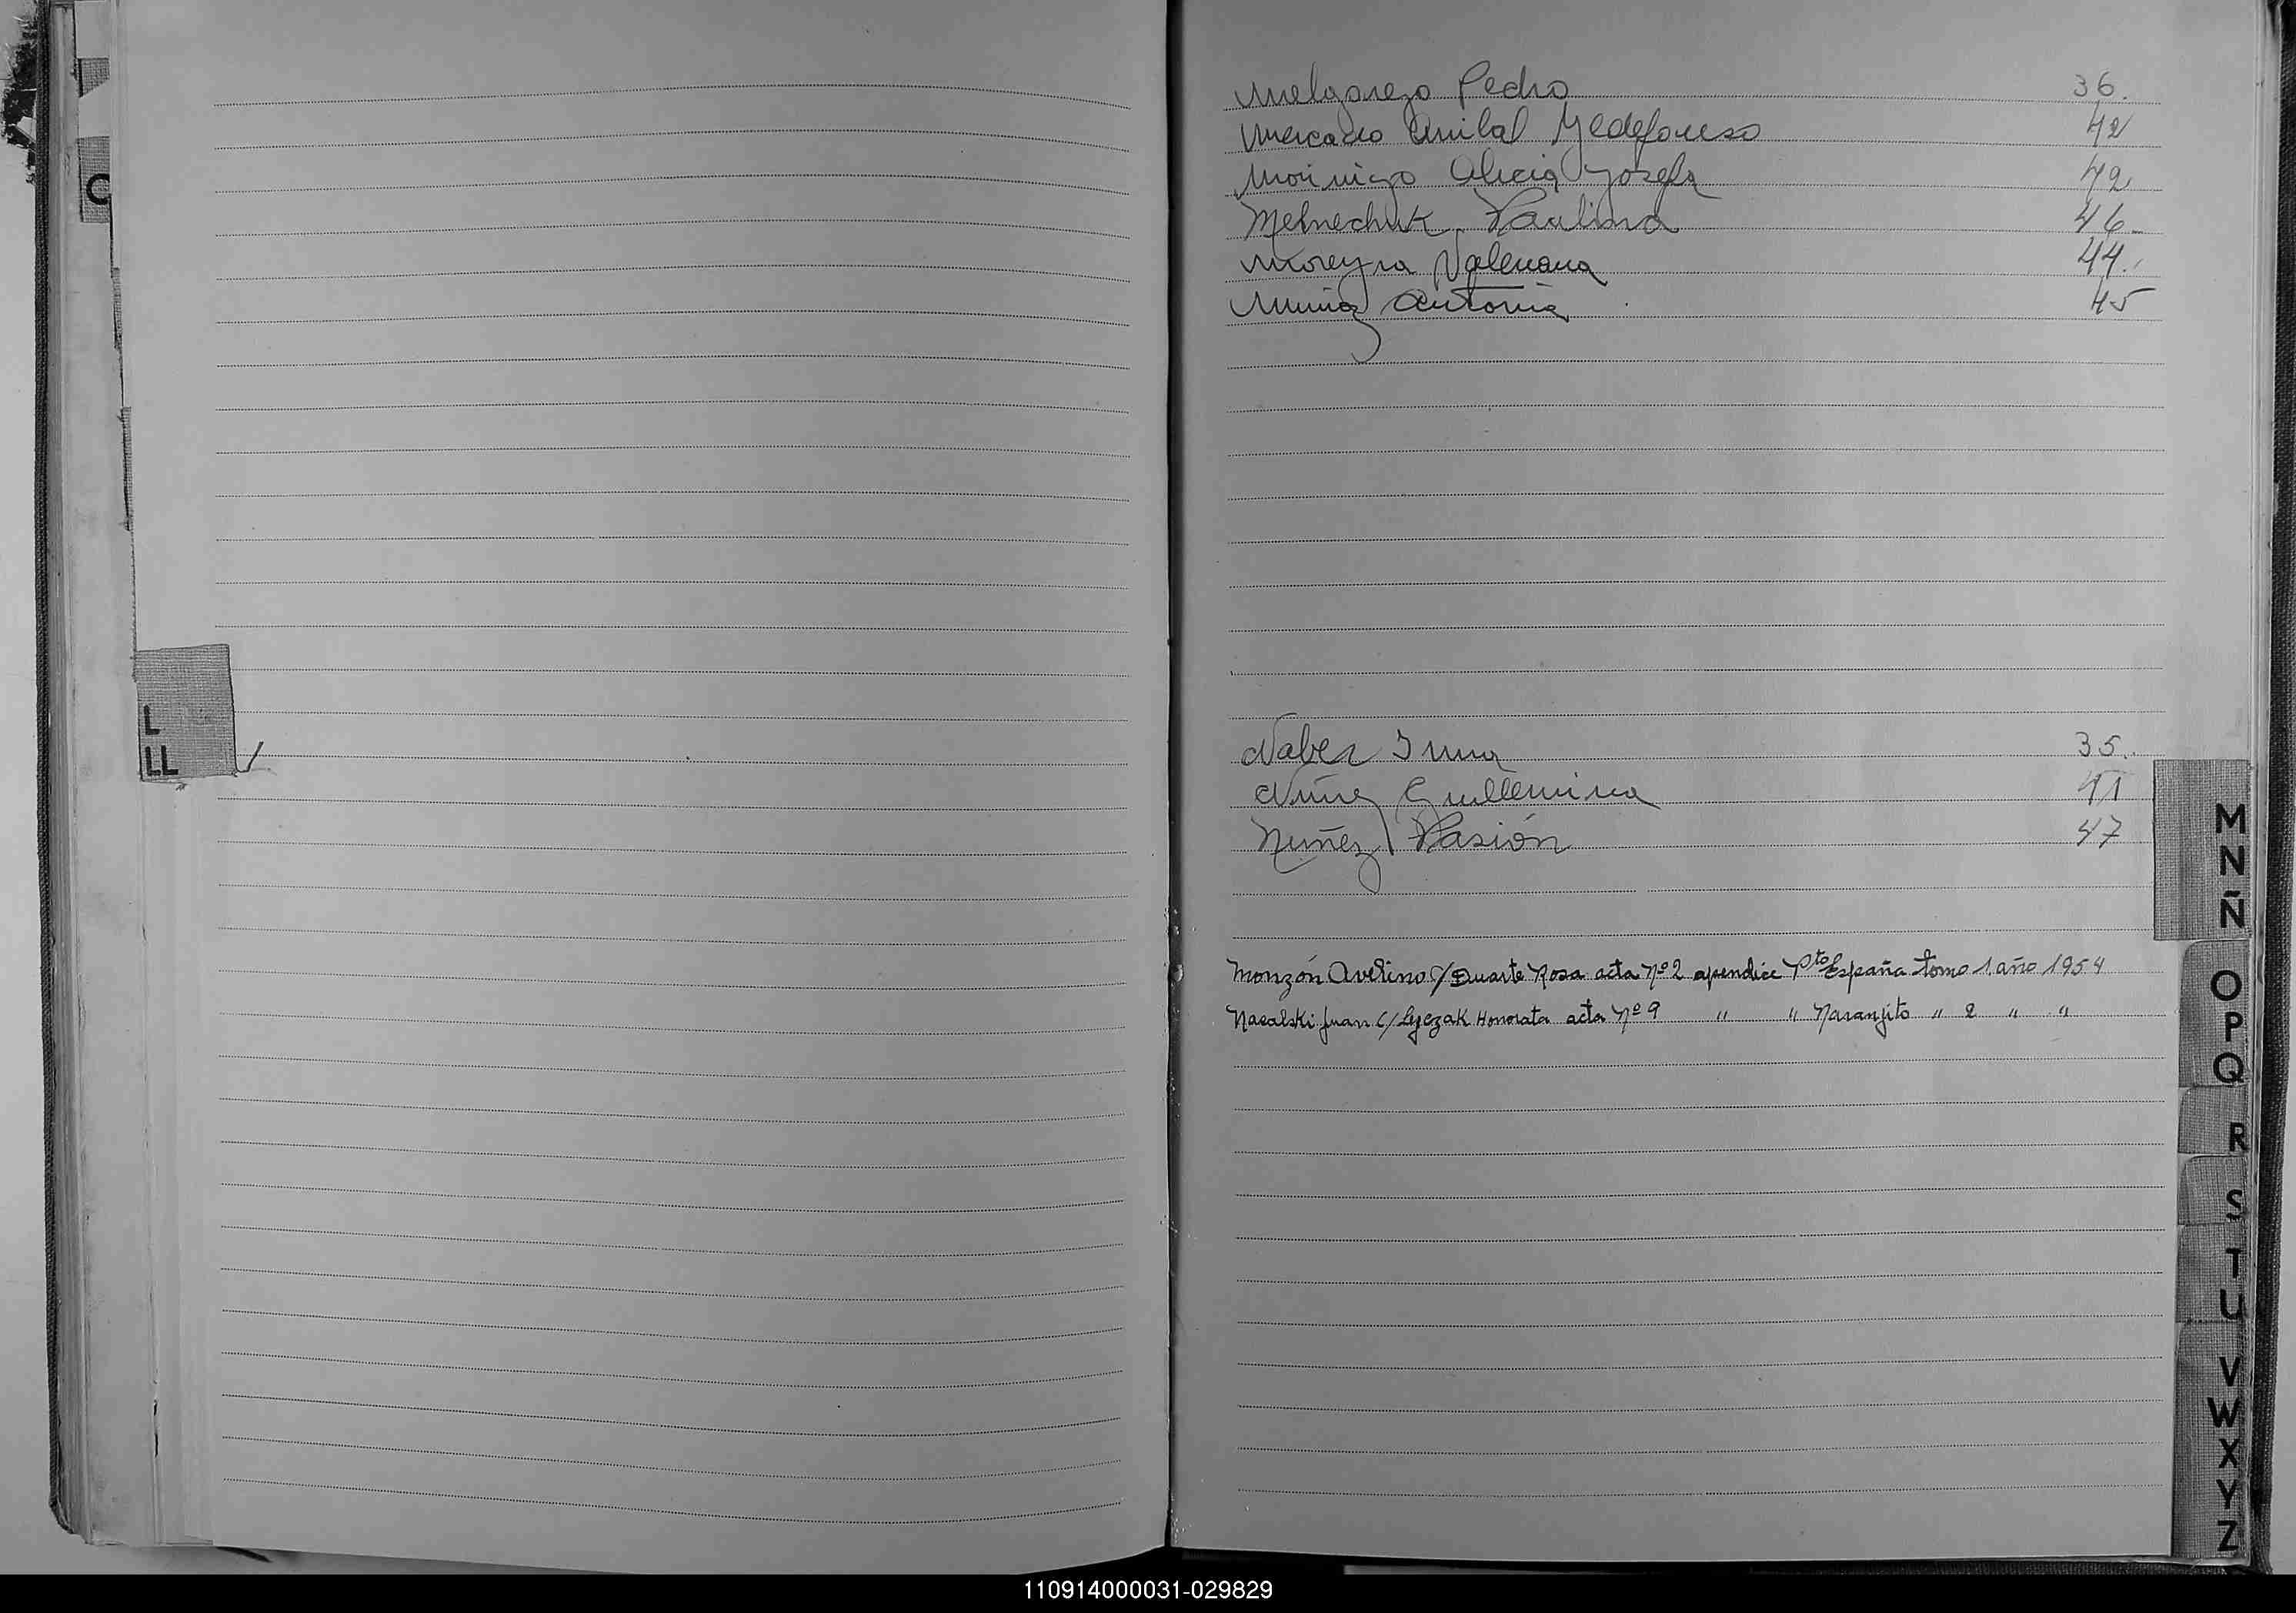 C
L
LL
Melgarejo Pedro 36.
Mercado Anibal Yldefonso 42
Morinigo Alicia Josefa 42
Melnechuk Paulina 46
Moreyra Valeriana 44.
Muñoz Antonia 45
Naber Irma 35.
Nuñez Guillermina 41
Nuñez Pasión 47
Monzón Avelino c/ Duarte Rosa acta Nº 2 apendice Pto España tomo 1 año 1954
Nacalski Juan c/ Honorata acta Nº 9 " " Naranjito " 2 " "
M
N
Ñ
O
P
Q
R
S
T
U
V
W
X
Y
Z
110914000031-029829